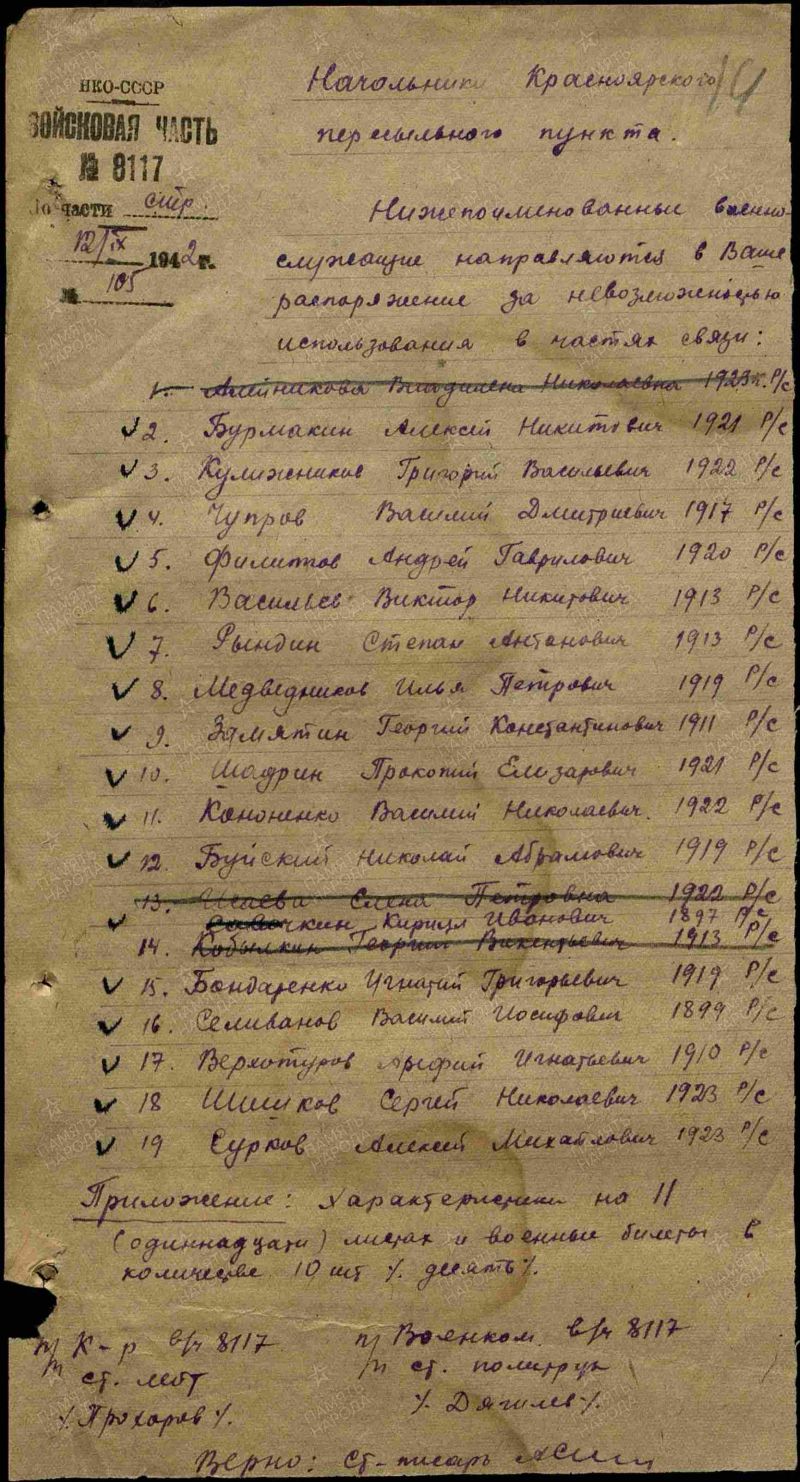 НКО-СССР
ВОЙСКОВАЯ ЧАСТЬ
№ 8117
По части стр.
12/IX 1942 г.
№ 105
Начальнику Красноярского
пересыльного пункта.
Нижепоименованные военно-
служащие направляются в Ваше
распоряжение за невозможностью
использования в частях связи:
1. Николаевна 1923 г. р/с
2. Бурмакин Алексей Никитович 1921 р/с
3. Кулижников Григорий Васильевич 1922 р/с
4. Чупров Василий Дмитриевич 1917 р/с
5. Филиппов Андрей Гаврилович 1920 р/с
6. Васильев Виктор Никитович 1913 р/с
7. Рындин Степан Антонович 1913 р/с
8. Медведников Илья Петрович 1919 р/с
9. Замятин Георгий Константинович 1911 р/с
10. Шадрин Прокопий Елизарович 1921 р/с
11. Кононенко Василий Николаевич. 1922 р/с
12. Буйский Николай Абрамович 1919 р/с
13. Исаева Елена Петровна 1922 р/с
Кирилл Иванович 1897 р/с
14. Кобылкин Георгий Викентьевич 1913 р/с
15. Бондаренко Игнатий Григорьевич 1919 р/с
16. Селиванов Василий Иосифович 1899 р/с
17. Верхотуров Арефий Игнатьевич 1910 р/с
18 Шишков Сергей Николаевич 1923 р/с
19 Сурков Алексей Михайлович 1923 р/с
Приложение: характеристики на 11
(одиннадцати) листах и военные билеты в
количестве 10 шт % десять %.
п/п К-р в/ч 8117
ст. лейт
% Прохоров %.
п/п Военком в/ч 8117
ст. политрук
% Дягилев %.
Верно: ст-писарь